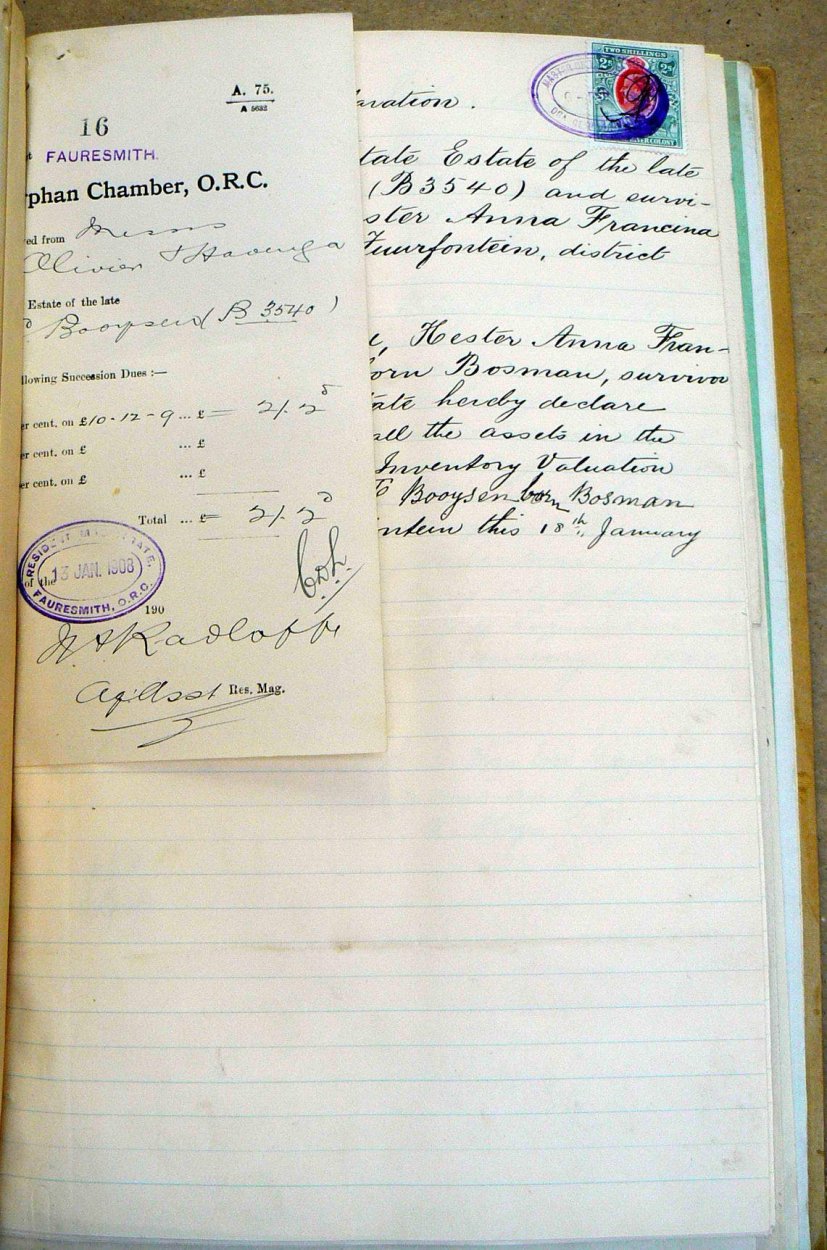 A. 75.
A 5632
16
FAURESMITH.
rphan Chamber, O.R.C.
ed from Messrs
Olivier & Havenga
Estate of the late
Booysen (B 3540)
llowing Succession Dues :—
er cent. on £10-12-9 ... £ = 2/. 2
er cent. on £ ... £
er cent. on £ ... £
Total ... £ = 2/. 2
RESIDENT MAGISTRATE.
13 JAN. 1908
FAURESMITH, O.R.C.
of the
190
Radloff
Ag. Asst Res. Mag.
TWO SHILLINGS
2s 2s
aration.
tate Estate of the late
(B3540) and survi-
ster Anna Francina
Zuurfontein, district
Hester Anna Fran-
orn Bosman, survivor
tate hereby declare
all the assets in the
Inventory Valuation
Booysen born Bosman
ntein this 18th January